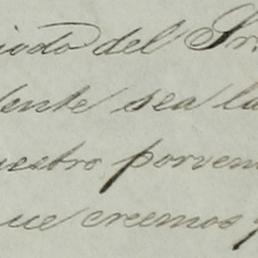 iodo del Sr.
dente sea la
uestro porveni
que creemos